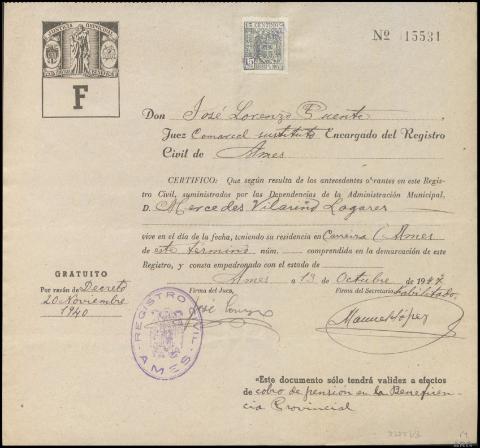 Nº 15531
F
5 CENTIMO
Don José Lorenzo Puente
Juez Comarcal sustituto Encargado del Registro
Civil de Ames
CERTIFICO: Que según resulta de los antecedentes obrantes en este Regis-
tro Civil, suministrados por las Dependencias de la Administración Municipal,
D. Mercedes Vilariño Lagares
vive en el día de la fecha, teniendo su residencia en Carreira (Ames
de este término núm. comprendida en la demarcación de este
Registro, y consta empadronado con el estado de
Ames a 13 de Octubre 1947
GRATUITO
Por razón de Decreto
20 Noviembre
1940
Firma del Juez,
Firma del Secretario habilitado,
José Lorenzo
Manuel López
REGISTRO CIVIL
AMES
«Este documento sólo tendrá validez a efectos
de cobro de pensión en la Beneficen-
cia Provincial